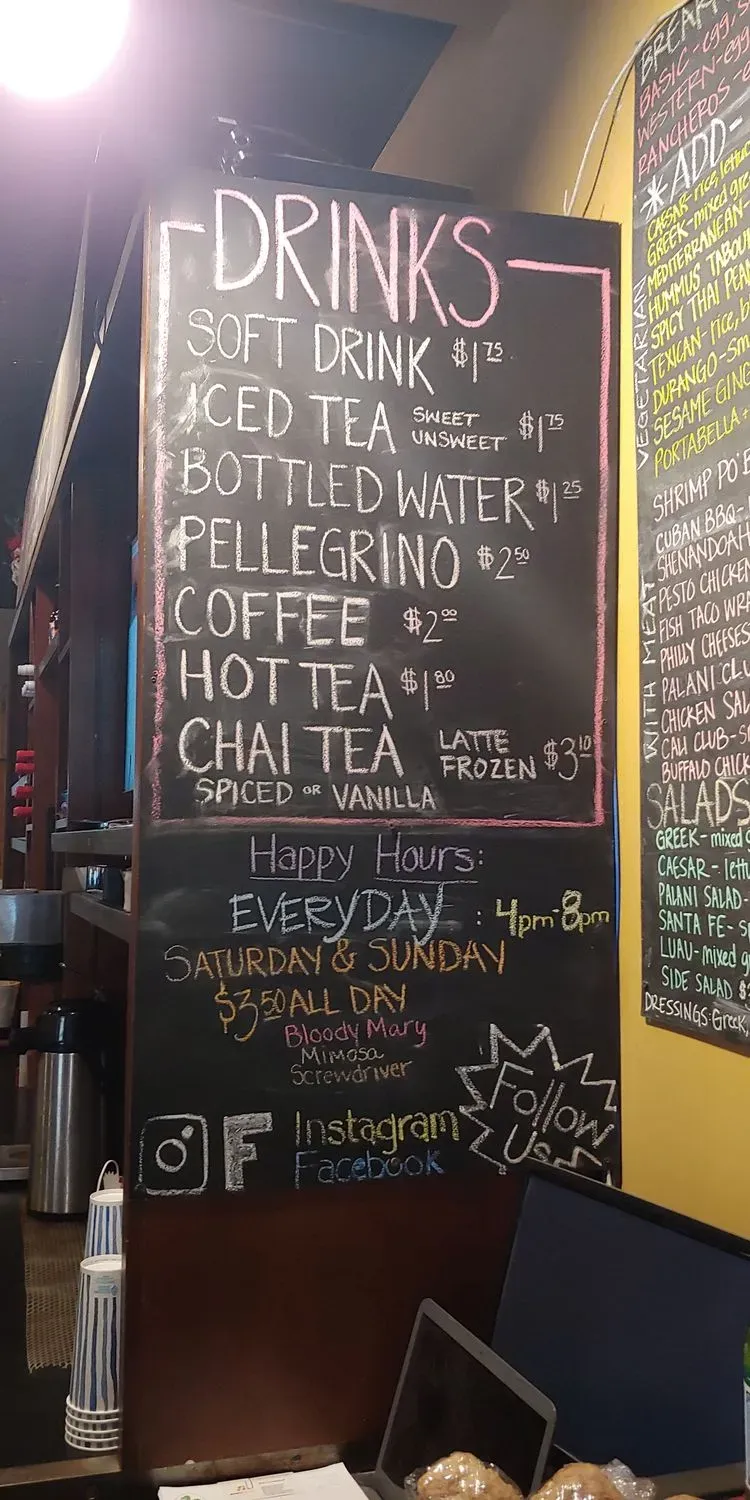 DRINKS
SOFT DRINK $1.75
ICED TEA SWEET UNSWEET $1.75
BOTTLED WATER $1.25
PELLEGRINO $2.50
COFFEE $2.00
HOT TEA $1.80
CHAI TEA LATTE FROZEN $3.10
SPICED OR VANILLA
Happy Hours:
EVERYDAY : 4pm-8pm
SATURDAY & SUNDAY
$3.50 ALL DAY
Bloody Mary
Mimosa
Screwdriver
Instagram
F Facebook
Follow
Us
BASIC - egg,
WESTERN - egg
RANCHEROS -
*ADD-
VEGETARIAN
CAESAR - rice, lettuce
GREEK - mixed
MEDITERRANEAN
HUMMUS
SPICY THAI
TEXICAN - rice,
DURANGO -
SESAME
PORTABELLA
WITH MEAT
SHRIMP PO'
CUBAN BBQ -
SHENANDOAH
PESTO CHICKEN
FISH TACO
PHILLY
PALANI
CHICKEN
CALI CLUB -
BUFFALO
SALADS
GREEK - mixed
CAESAR -
PALANI SALAD -
SANTA FE -
LUAU - mixed
SIDE SALAD $
DRESSINGS: Greek